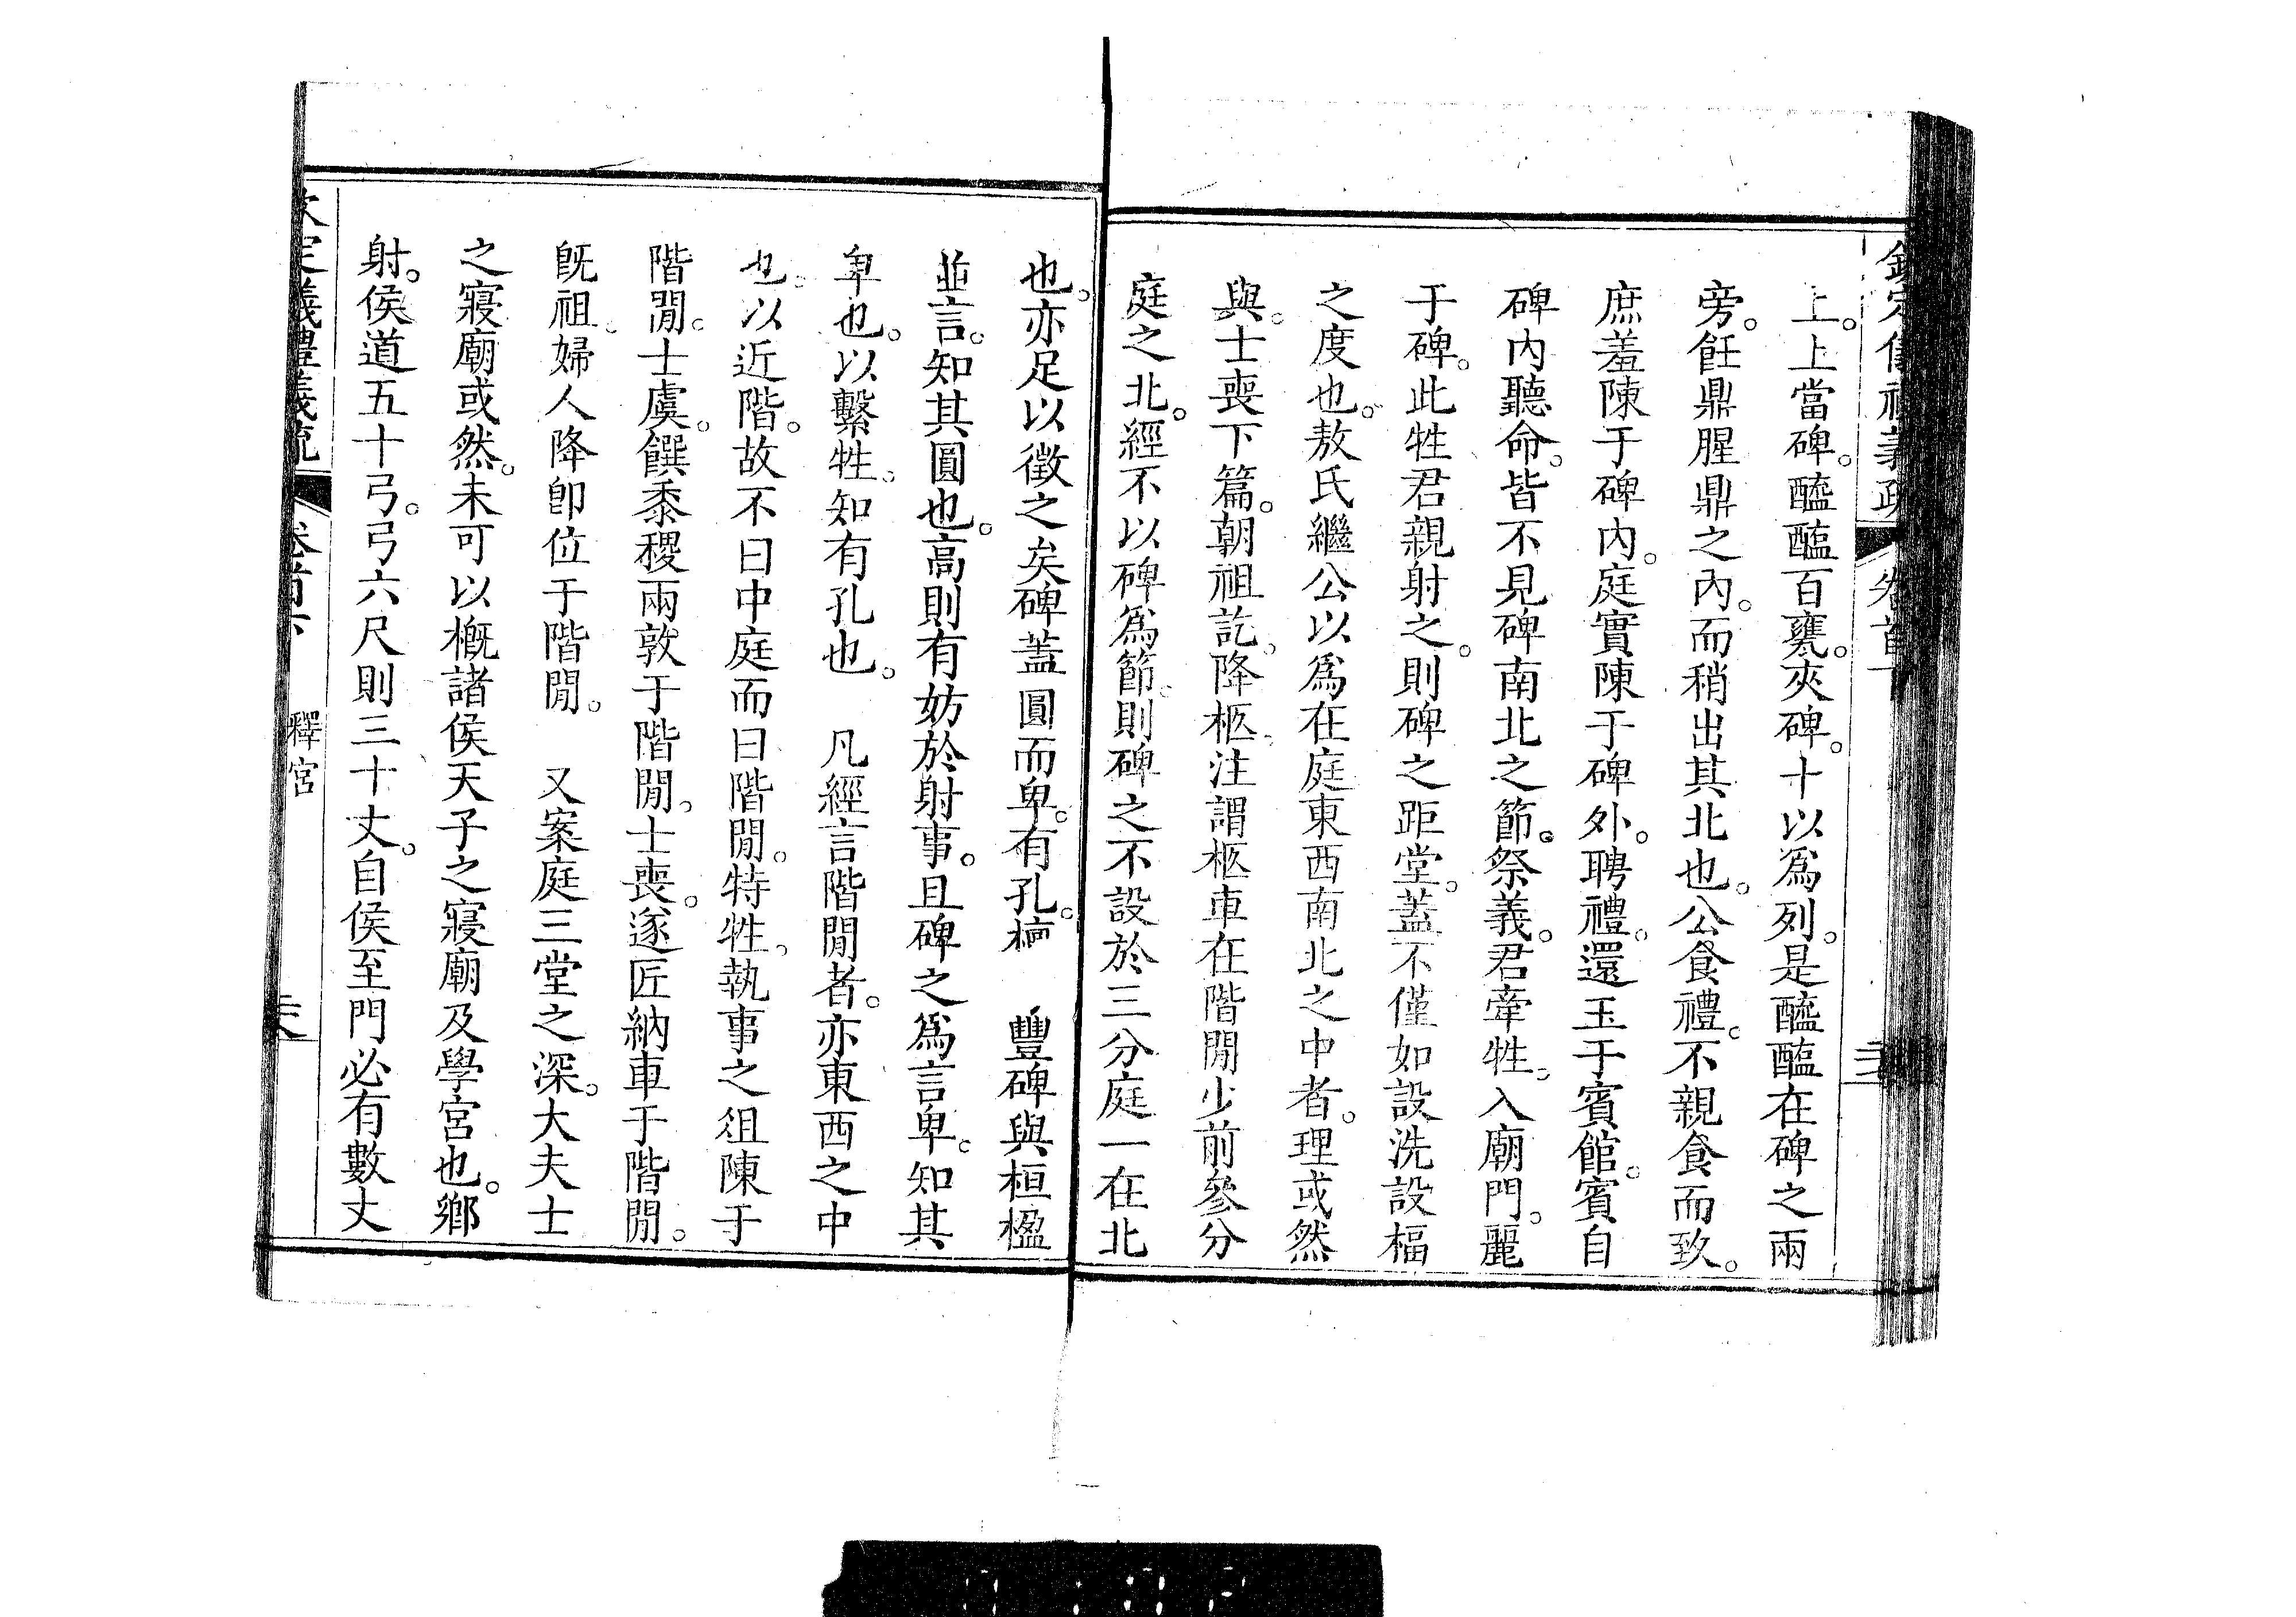 上。上當碑。醯醢百罋。夾碑。十以爲列。是醯醢在碑之兩
旁。飪鼎腥鼎之內。而稍出其北也。公食禮。不親食而致。
庶羞陳于碑內。庭實陳于碑外。聘禮。還玉于賓館。賓自
碑內聽命。皆不見碑南北之節。祭義。君牽牲。入廟門。麗
于碑。此牲君親射之。則碑之距堂。蓋不僅如設洗設楅
之度也。敖氏繼公以爲在庭東西南北之中者。理或然
與。士喪下篇。朝祖訖。降柩。注謂柩車在階閒少前參分
庭之北。經不以碑爲節。則碑之不設於三分庭一在北
也。亦足以徵之矣碑蓋圓而卑。有孔。 豐碑與桓楹
並言。知其圓也。高則有妨於射事。且碑之爲言卑。知其
卑也。以繫牲。知有孔也。 凡經言階閒者。亦東西之中
也。以近階。故不曰中庭而曰階閒。特牲。執事之俎陳于
階閒。士虞。饌黍稷兩敦于階閒。士喪。遂匠納車于階閒。
旣祖。婦人降卽位于階閒。 又案庭三堂之深。大夫士
之寢廟或然。未可以槪諸侯天子之寢廟及學宮也。鄉
射。侯道五十弓。弓六尺則三十丈。自侯至門必有數丈
欽定儀禮義疏 卷首下 釋宮